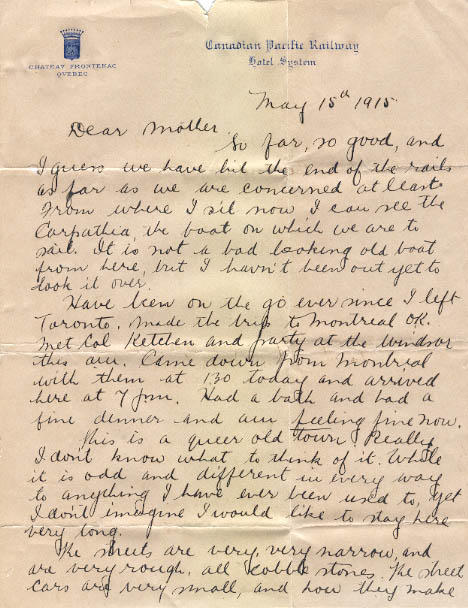 CHATEAU FRONTENAC
QUEBEC
Canadian Pacific Railway
Hotel System
May 15th 1915
Dear Mother
So far, so good, and
I guess we have hit the end of the rails
as far as we are concerned at least.
From where I sit now I can see the
Carpathia the boat on which we are to
sail. It is not a bad looking old boat
from here, but I havn't been out yet to
look it over.
Have been on the go ever since I left
Toronto. Made the trip to Montreal OK.
Met Col Ketchen and party at the Windsor
this am. Came down from Montreal
with them at 1.30 today and arrived
here at 7 pm. Had a bath and had a
fine dinner and am feeling fine now.
This is a queer old town Really
I don't know what to think of it. While
it is odd and different in every way
to anything I have ever been used to, yet
I don't imagine I would like to stay here
very long.
The streets are very, very narrow, and
are very rough, all cobble stones. The street
cars are very small, and how they make